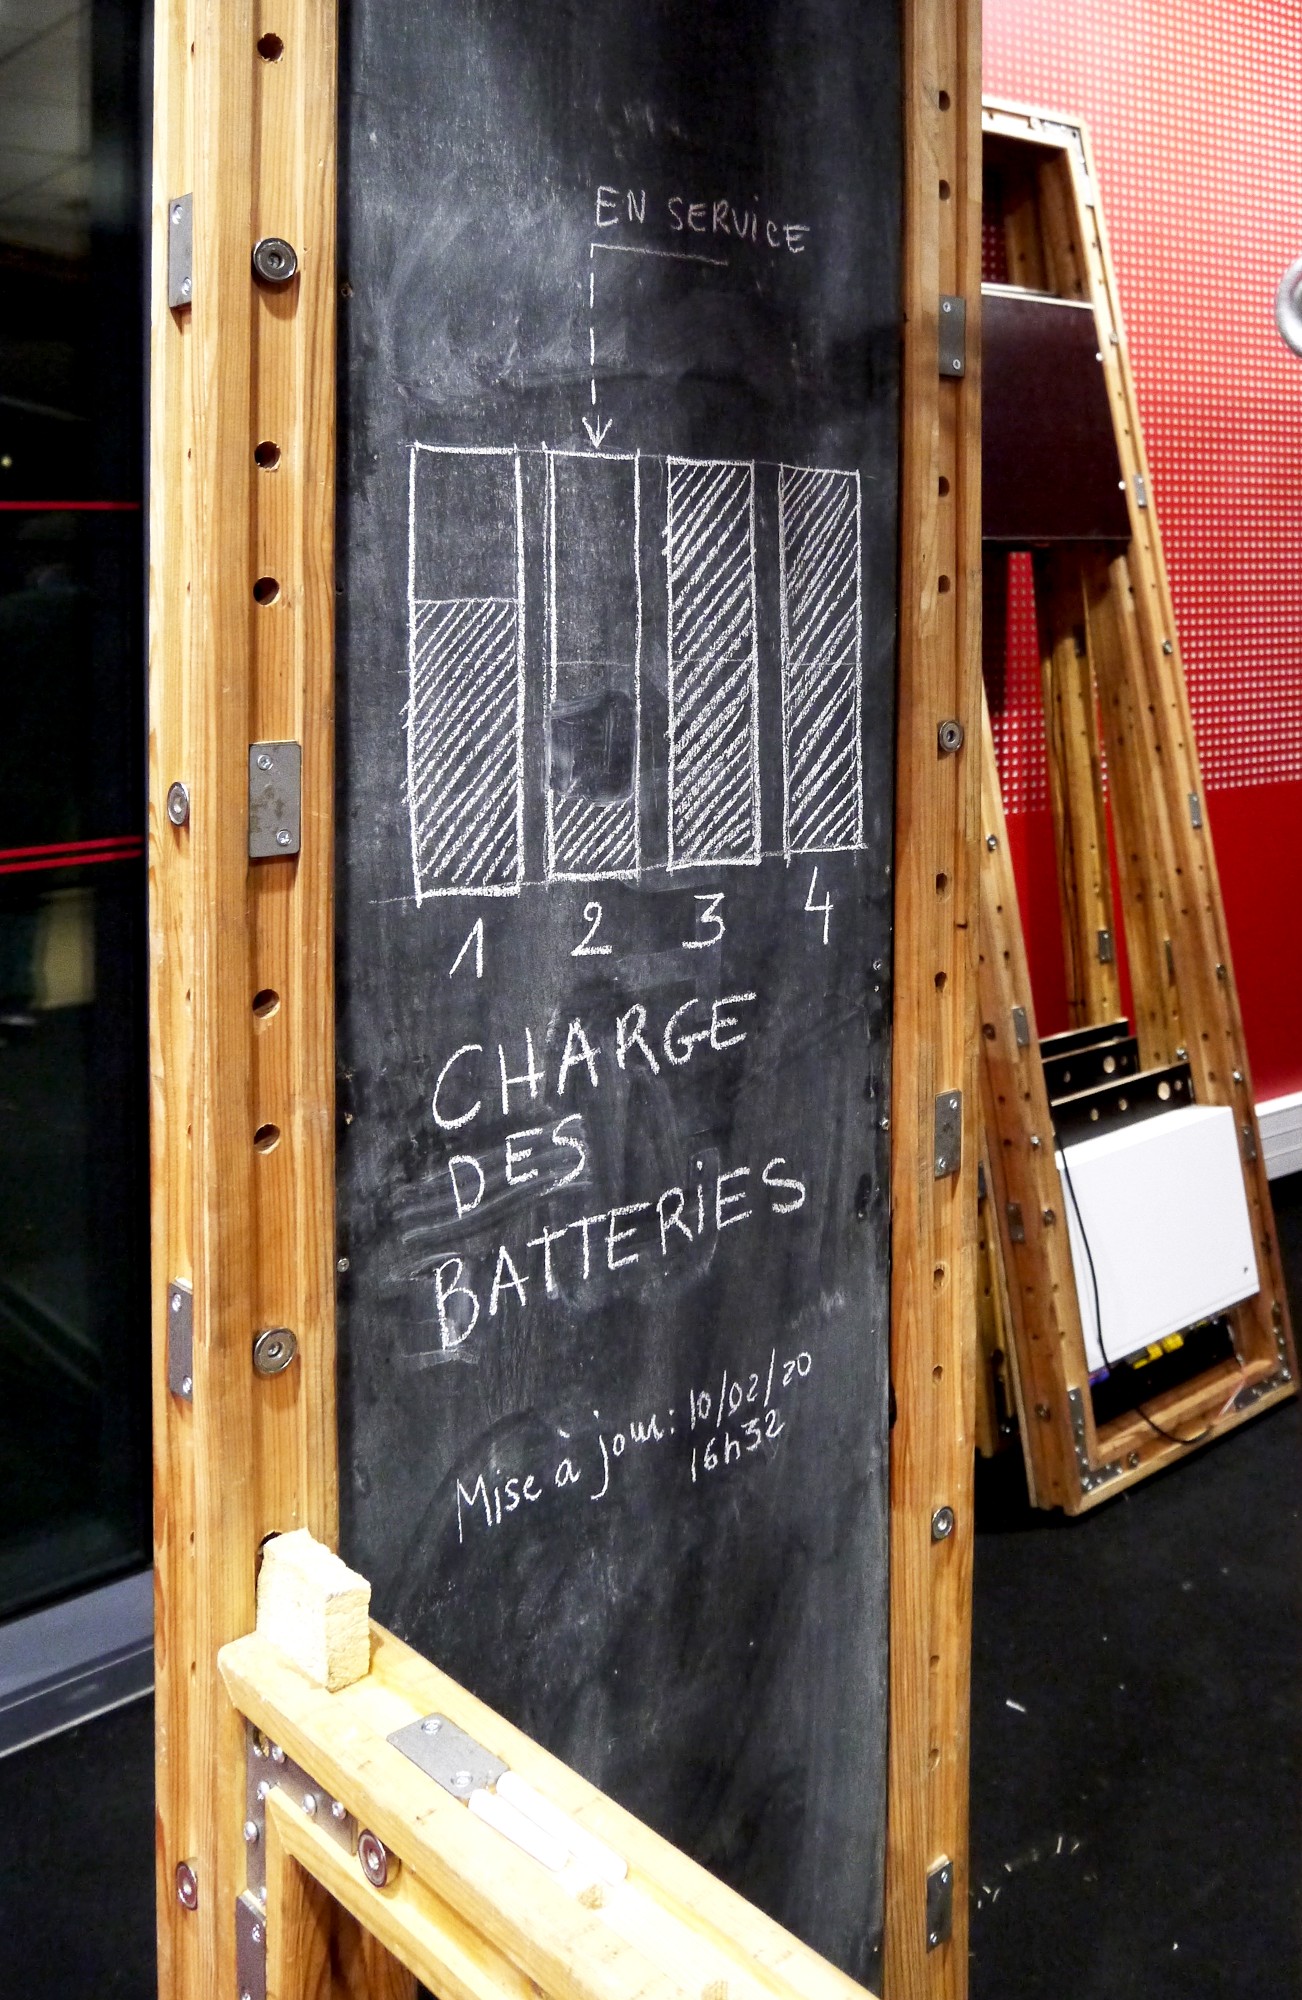 EN SERVICE
1 2 3 4
CHARGE
DES
BATTERIES
Mise à jour: 10/02/20
16h32